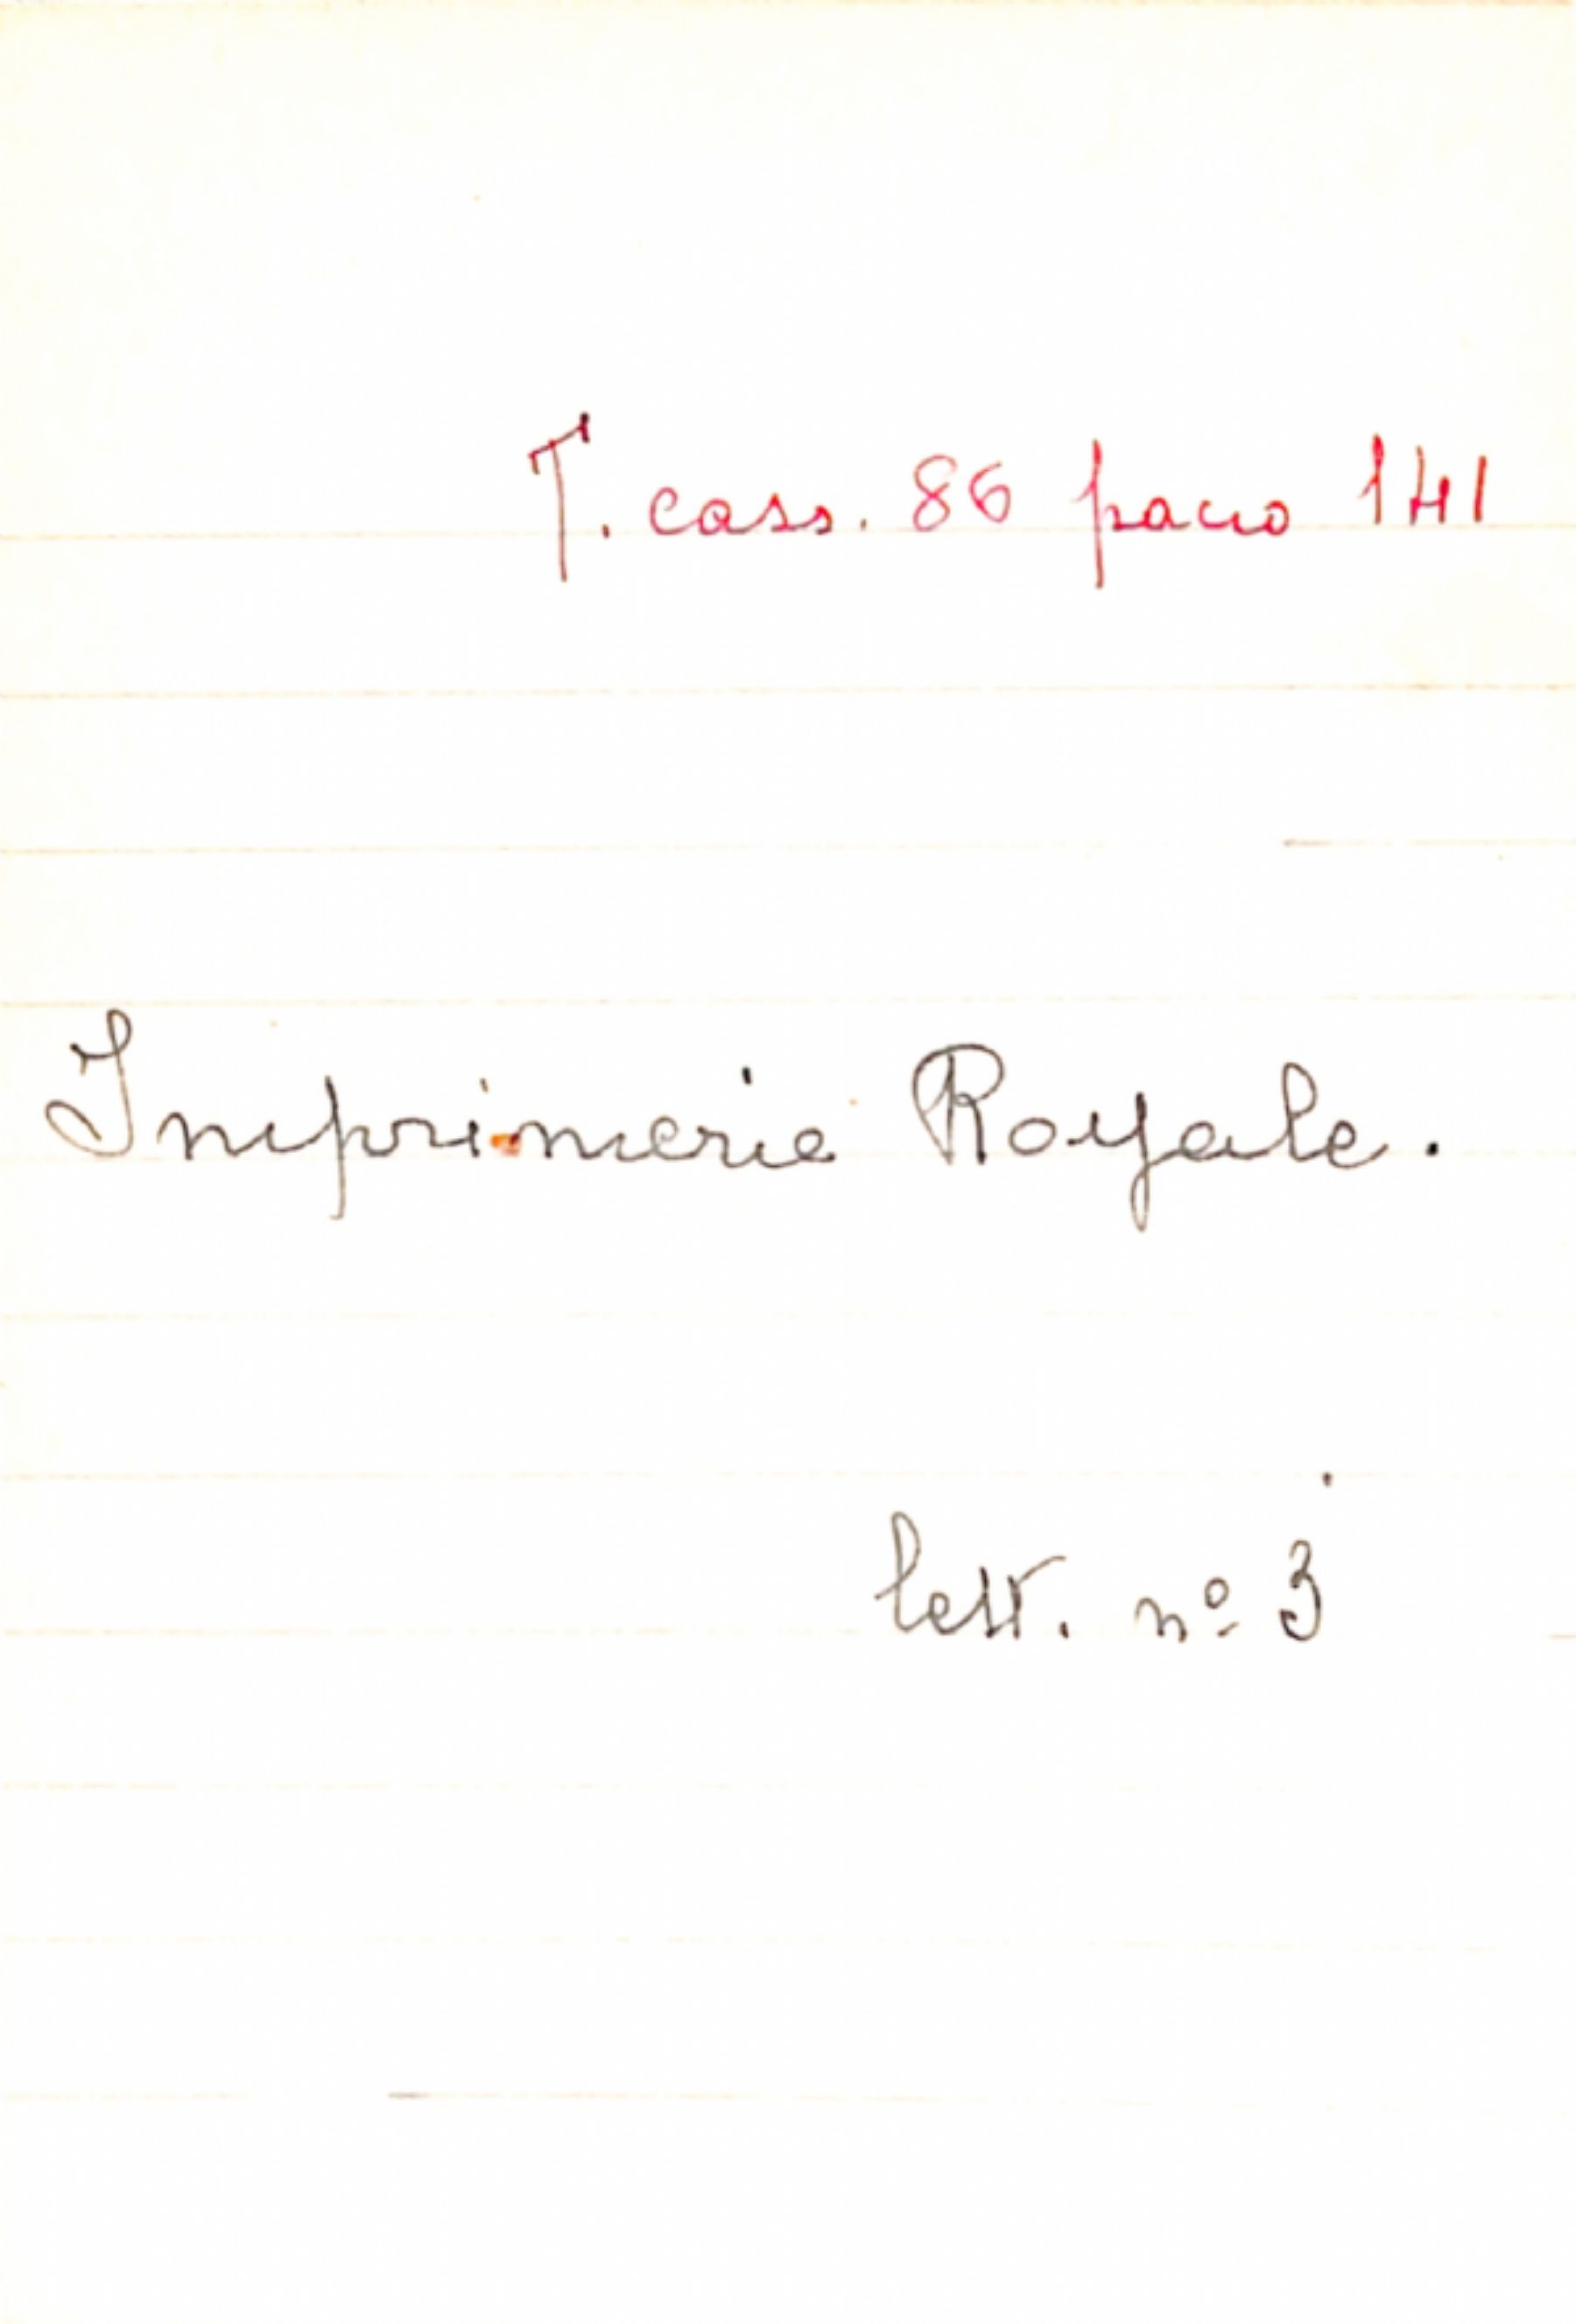 T. cass. 86 pacco 141
Imprimerie Royale.
lett. nº 3